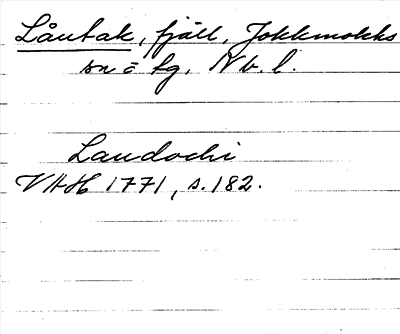 Låutak, fjäll, Jokkmokks
sn = tg, Nb. l.
Laudochi
VHH 1771, s. 182.